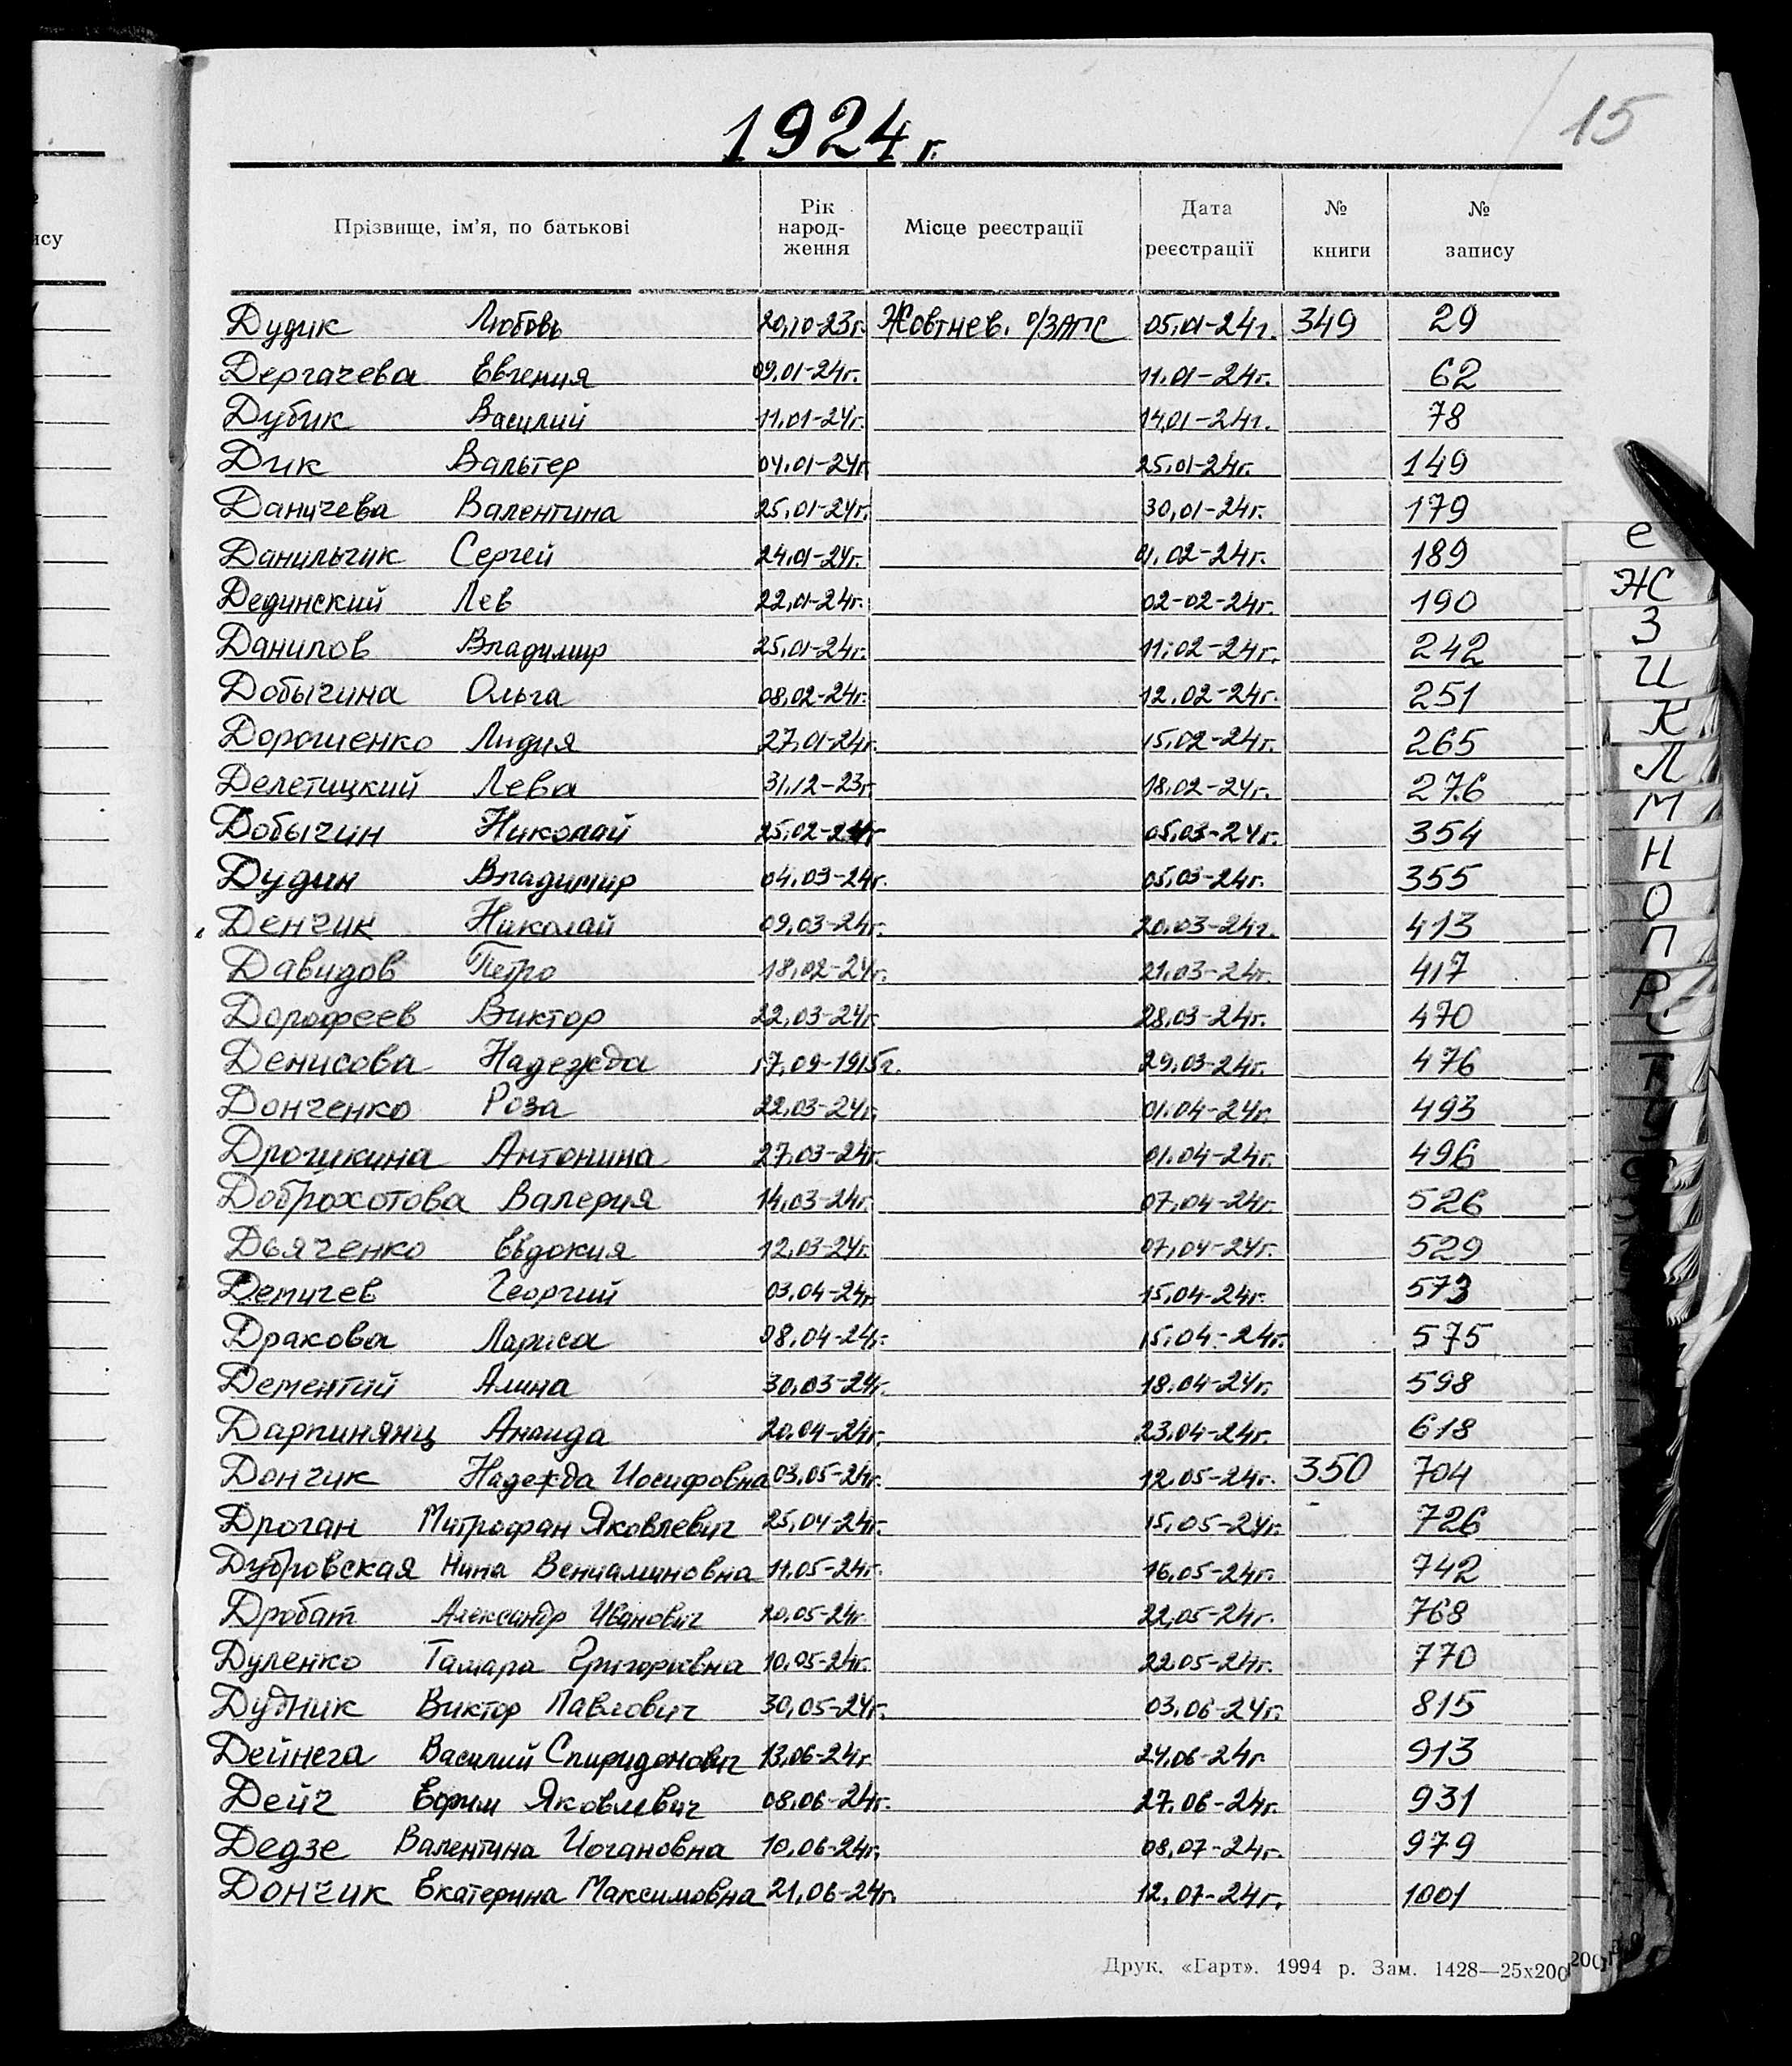 15
1924 г.
Прізвище, ім'я, по батькові Рік народ-ження Місце реєстрації Дата реєстрації № книги № запису
Дудик Любовь 20,10-23г. Жовтнев. о/ЗАГС 05,01-24г. 349 29
Дергачева Евгения 09,01-24г. 11.01-24г. 62
Дубик Василий 11,01-24г. 14,01-24г. 78
Дик Вальтер 04.01-24г 25.01-24г. 149
Даничева Валентина 25,01-24г. 30,01-24г. 179
Данильчик Сергей 24,01-24г. 01.02-24г. 189
Дединский Лев 22,01-24г. 02-02-24г. 190
Данилов Владимир 25,01-24г. 11.02-24г. 242
Добычина Ольга 08,02-24г. 12.02-24г. 251
Дорошенко Лидия 27,01-24г. 15,02-24г. 265
Делетицкий Лева 31.12-23г 18,02-24г. 276
Добычин Николай 25,02-24г 05,03-24г. 354
Дудин Владимир 04.03-24г. 05,03-24г. 355
Денчик Николай 09,03-24г. 20,03-24г. 413
Давидов Петро 18,02-24г. 21,03-24г. 417
Дорофеев Виктор 22,03-24г. 28,03-24г. 470
Денисова Надежда 17,09-1915г. 29,03-24г. 476
Донченко Роза 22,03-24г. 01.04-24г. 493
Дрочикина Антонина 27,03-24г. 01.04-24г. 496
Доброхотова Валерия 14,03-24г. 07,04-24г. 526
Дьяченко Евдокия 12,03-24г. 07,04-24г. 529
Демичев Георгий 03.04-24г 15,04-24г. 573
Дракова Лариса 08.04-24г. 15,04-24г. 575
Дементий Алина 30,03-24г. 18.04-24г. 598
Дарпинянц Анаида 20,04-24г. 23,04-24г. 618
Дончик Надежда Иосифовна 03,05-24г. 12,05-24г. 350 704
Дроган Митрофан Яковлевич 25,04-24г. 15,05-24г. 726
Дубровская Нина Вениаминовна 11,05-24г. 16,05-24г. 742
Дробат Александр Иванович 20,05-24г. 22,05-24г. 768
Дуленко Тамара Григорьевна 10,05-24г. 22,05-24г. 770
Дудник Виктор Павлович 30,05-24г. 03,06-24г. 815
Дейнега Василий Спиридонович 13,06-24г 24,06-24г 913
Дейч Ефим Яковлевич 08,06-24г. 27.06-24г. 931
Дедзе Валентина Иогановна 10,06-24г. 08,07-24г. 979
Дончик Екатерина Максимовна 21,06-24г. 12,07-24г. 1001
Друк. «Гарт». 1994 р. Зам. 1428—25х200
Е
Ж
З
И
К
Л
М
Н
О
П
Р
С
Т